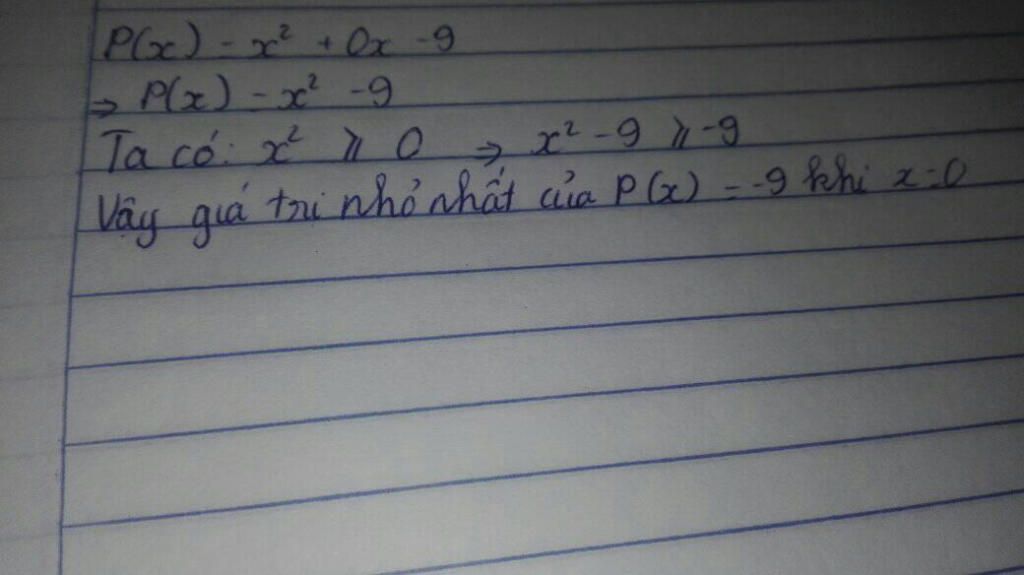 P(x) = x² + 0x - 9
⇒ P(x) = x² - 9
Ta có: x² ⩾ 0 ⇒ x² - 9 ⩾ -9
Vậy giá trị nhỏ nhất của P(x) = -9 khi x = 0